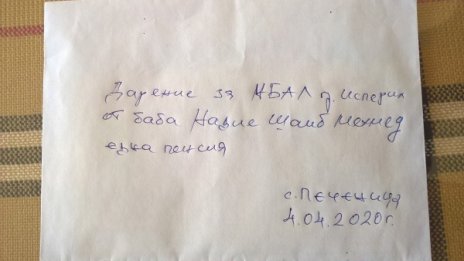 Дарение за МБАЛ гр. Исперих
от баба Назие Шаиб Мехмед
една пенсия
с. Печеница
4.04.2020г.